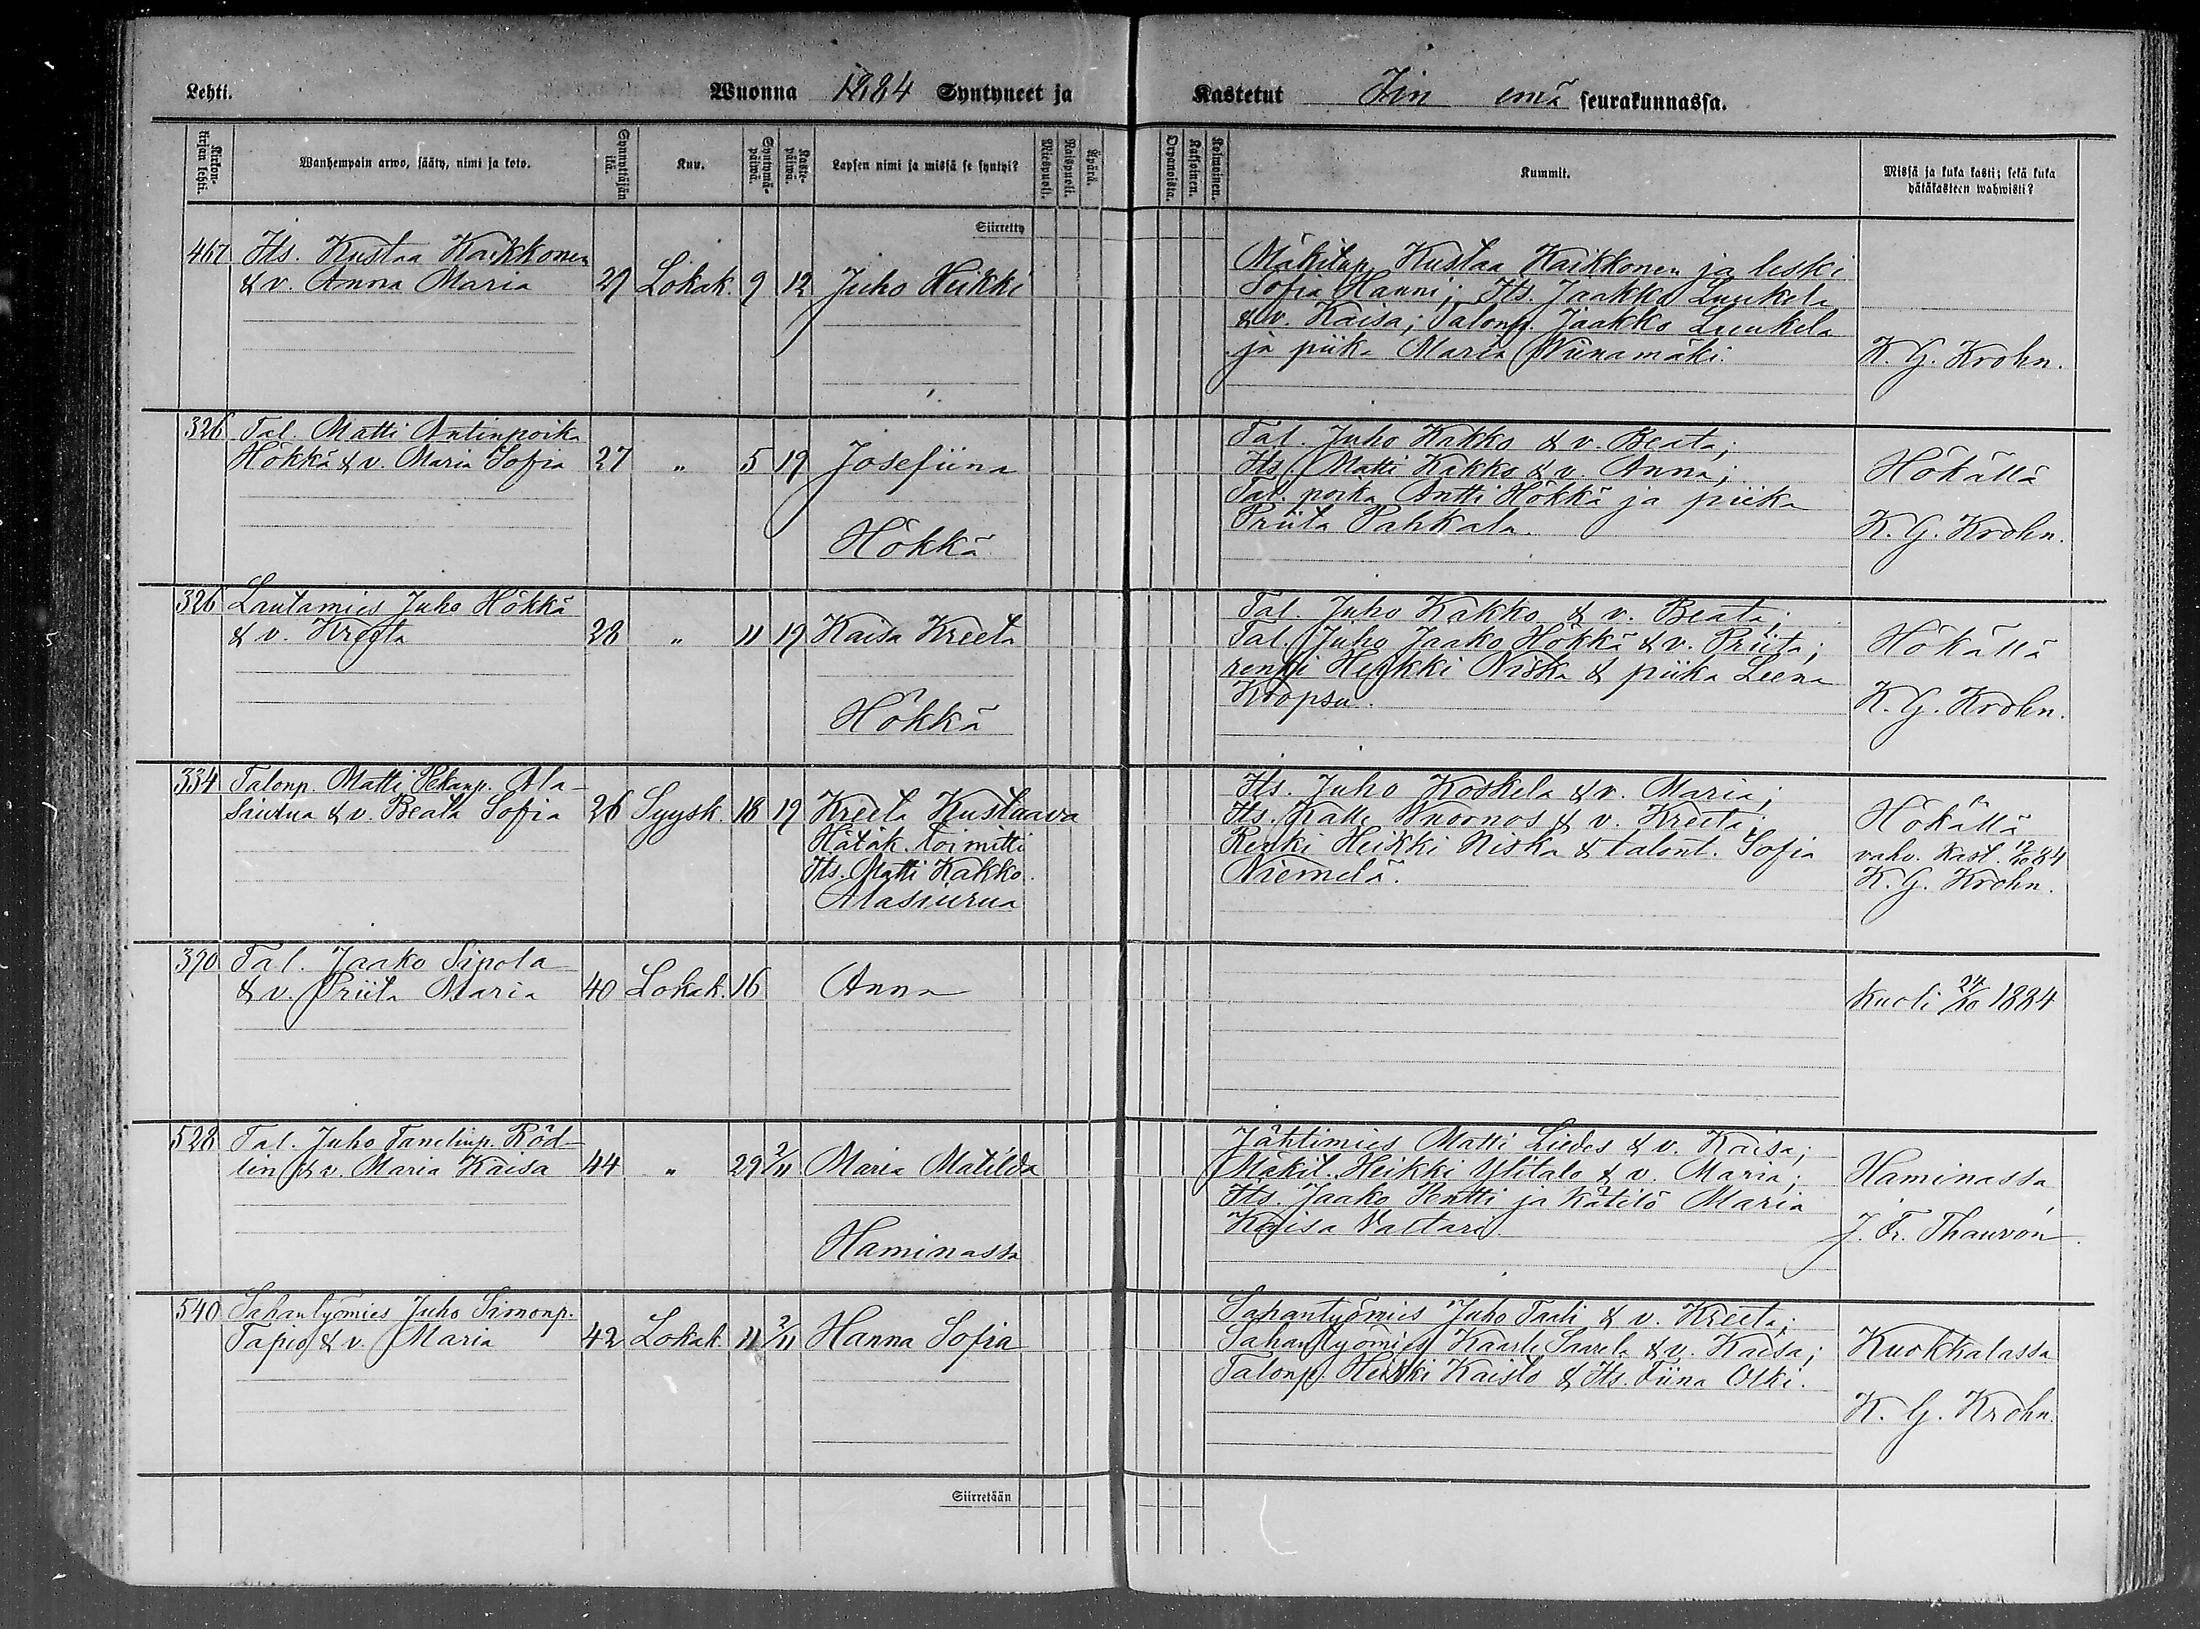 Lehti.
Wuonna 1884 Syntyneet ja
Kastetut Iin emä seurakunnassa.
Kirkon-
kirjan lehti.
Wanhempain arwo, sääty, nimi ja koto.
Synnyttäjän
ikä.
Kuu.
Syntymä-
päiwä.
Kaste-
päiwä.
Lapsen nimi ja missä se syntyi?
Miespuoli.
Naispuoli.
Äpärä.
Orpanoista.
Kaksoinen.
Kolmoinen.
Kummit.
Missä ja kuka kasti; sekä kuka
hätäkasteen wahwisti?
Siirretty
467 Its. Kustaa Kaikkonen
& v. Anna Maria 29 Lokak. 9 12 Juho Heikki
Mäkitup. Kustaa Kaikkonen ja leski
Sofia Hanni; Its. Jaakko Luukela
& v. Kaisa; Talonp. Jaakko Luukela
ja piika Maria Niinamäki.
K. G. Krohn.
326 Tal. Matti Antinpoika
Hökkä & v. Maria Sofia 27 " 5 19 Josefiina
Hökkä
Tal. Juho Kakko & v. Beata;
Its. Matti Kakko & v. Anna;
Tal. poika Antti Hökkä ja piika
Priita Pahkala.
Hökällä
K. G. Krohn.
326 Lautamies Juho Hökkä
& v. Kreeta 28 " 11 19 Kaisa Kreeta
Hökkä
Tal. Juho Kakko & v. Beata;
Tal. Juho Jaako Hökkä & v. Priita;
renki Heikki Niska & piika Leena
Kropsu.
Hökällä
K. G. Krohn.
334 Talonp. Matti Pekanp. Ala-
siurua & v. Beata Sofia 26 Syysk. 18 19 Kreeta Kustaava
Hätäk. toimitti
Its. Matti Kakko.
Alasiurua
Its. Juho Koskela & v. Maria;
Its. Kalle Wuornos & v. Kreeta;
Renki Heikki Niska & talont. Sofia
Niemelä.
Hökällä
vahv. kast. 19/10 84
K. G. Krohn.
390 Tal. Jaako Sipola
& v. Priita Maria 40 Lokak. 16 Anna
Kuoli 24/10 1884
528 Tal. Juho Tanelinp. Röd-
lin & v. Maria Kaisa 44 " 29 2/11 Maria Matilda
Haminassa
Jahtimies Matti Liedes & v. Kaisa;
Mäkit. Heikki Ylitalo & v. Maria;
Its. Jaako Pentti ja Kätilö Maria
Kaisa Valtari.
Haminassa
J. Fr. Thauvón.
540 Sahantyömies Juho Simonp.
Tapio & v. Maria 42 Lokak. 11 2/11 Hanna Sofia
Sahantyömies Juho Taali & v. Kreeta;
Sahantyömies Kaarle Saarela & v. Kaisa;
Talonp. Heikki Kaisto & Its. Fiina Olki.
Kuokkalassa
K. G. Krohn.
Siirretään